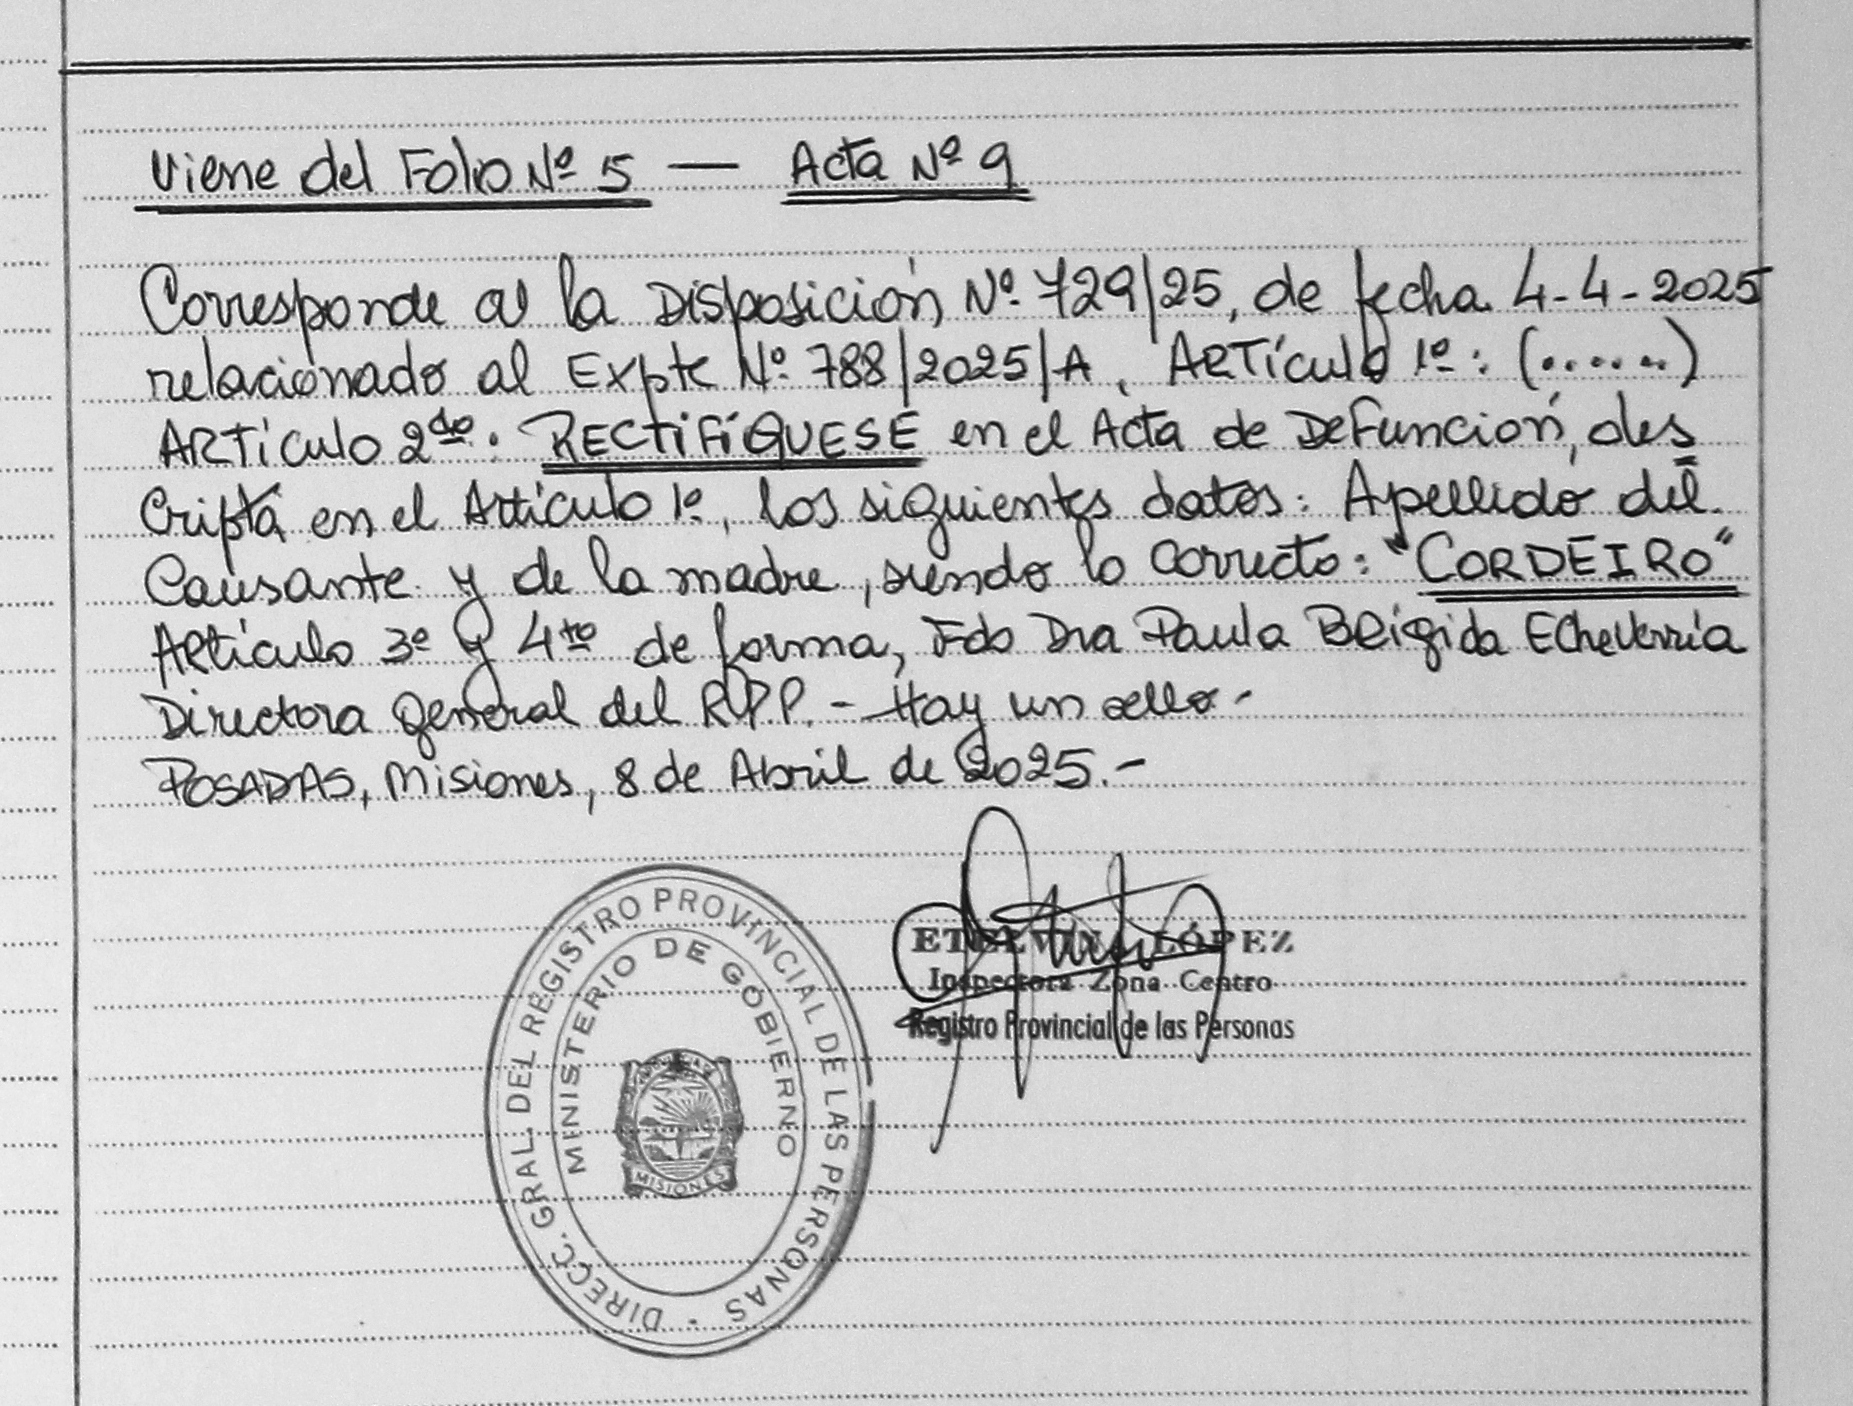 Viene del Folio Nº 5 — Acta Nº 9
Corresponde a la Disposición Nº 729/25, de fecha 4-4-2025
relacionado al Expte Nº 788/2025/A, ARTículo 1º: (......)
ARTículo 2do: RECTIFÍQUESE en el Acta de Defunción, des
cripta en el Artículo 1º, los siguientes datos: Apellido del
Causante y de la madre, siendo lo correcto: "CORDEIRO"
Artículo 3º y 4to de forma, Fdo Dra Paula Brígida Echeverría
Directora General del RPP. - Hay un sello -
POSADAS, Misiones, 8 de Abril de 2025.-
ETELVINA LÓPEZ
Inspectora Zona Centro
Registro Provincial de las Personas
DIRECC. GRAL. DEL REGISTRO PROVINCIAL DE LAS PERSONAS -
MINISTERIO DE GOBIERNO
MISIONES